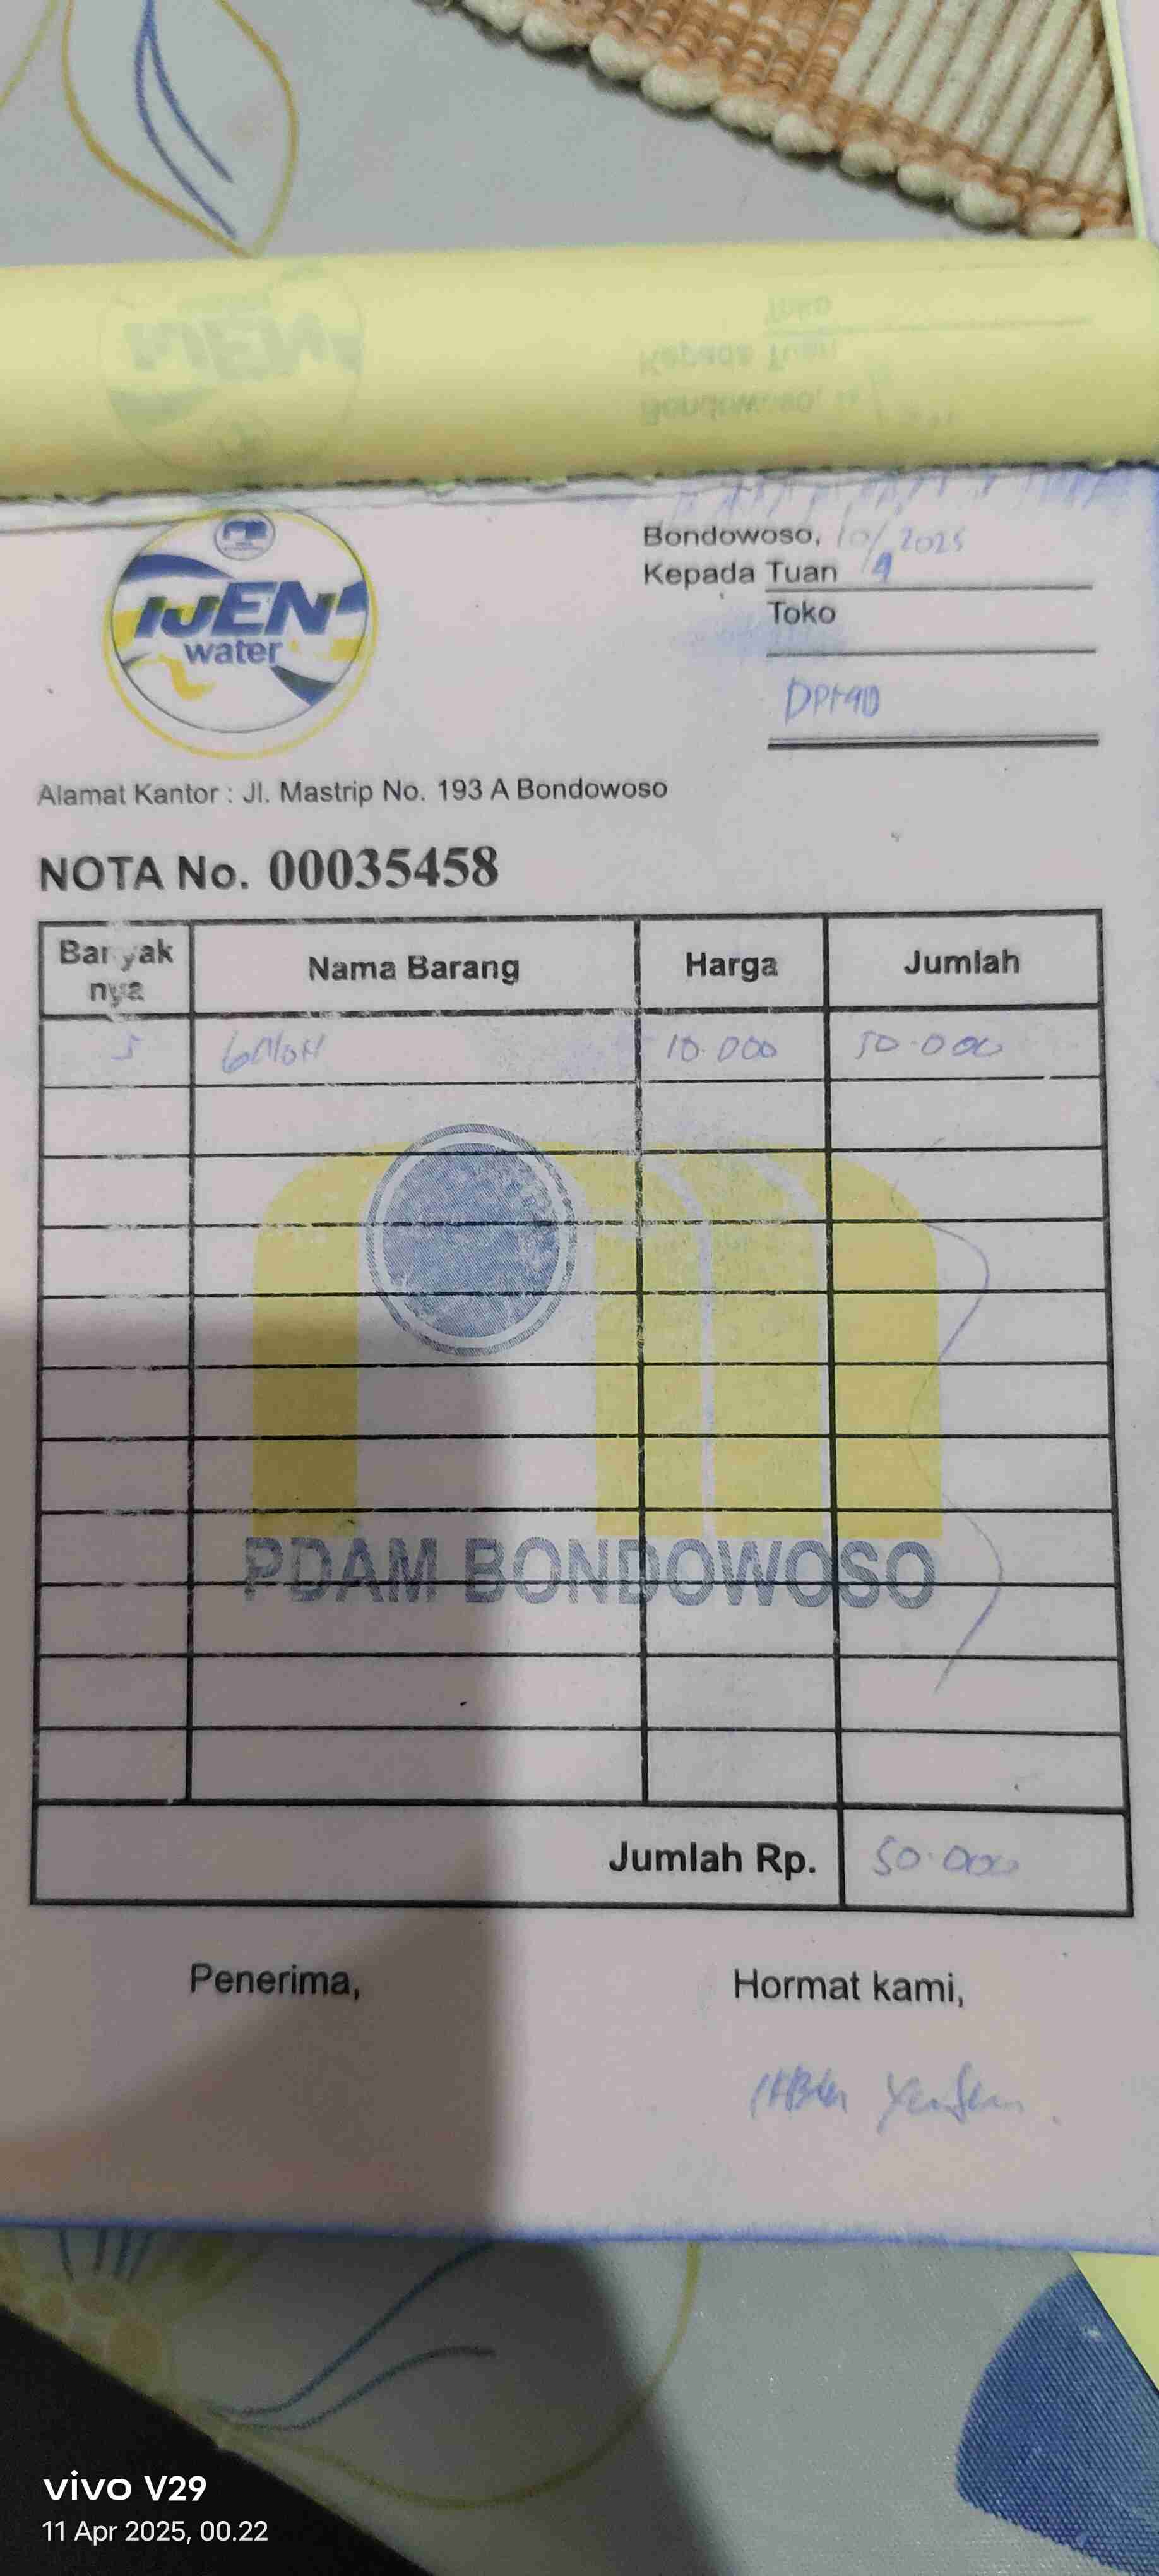 IJEN
water
Bondowoso, 10/4 2025
Kepada Tuan
Toko
Alamat Kantor : Jl. Mastrip No. 193 A Bondowoso
NOTA No. 00035458
Banyak nya Nama Barang Harga Jumlah
5 10.000 50.000
PDAM BONDOWOSO
Jumlah Rp. 50.000
Penerima, Hormat kami,
vivo V29
11 Apr 2025, 00.22